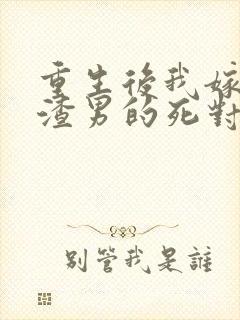 重生後我嫁
渣男的死對
別管我是誰